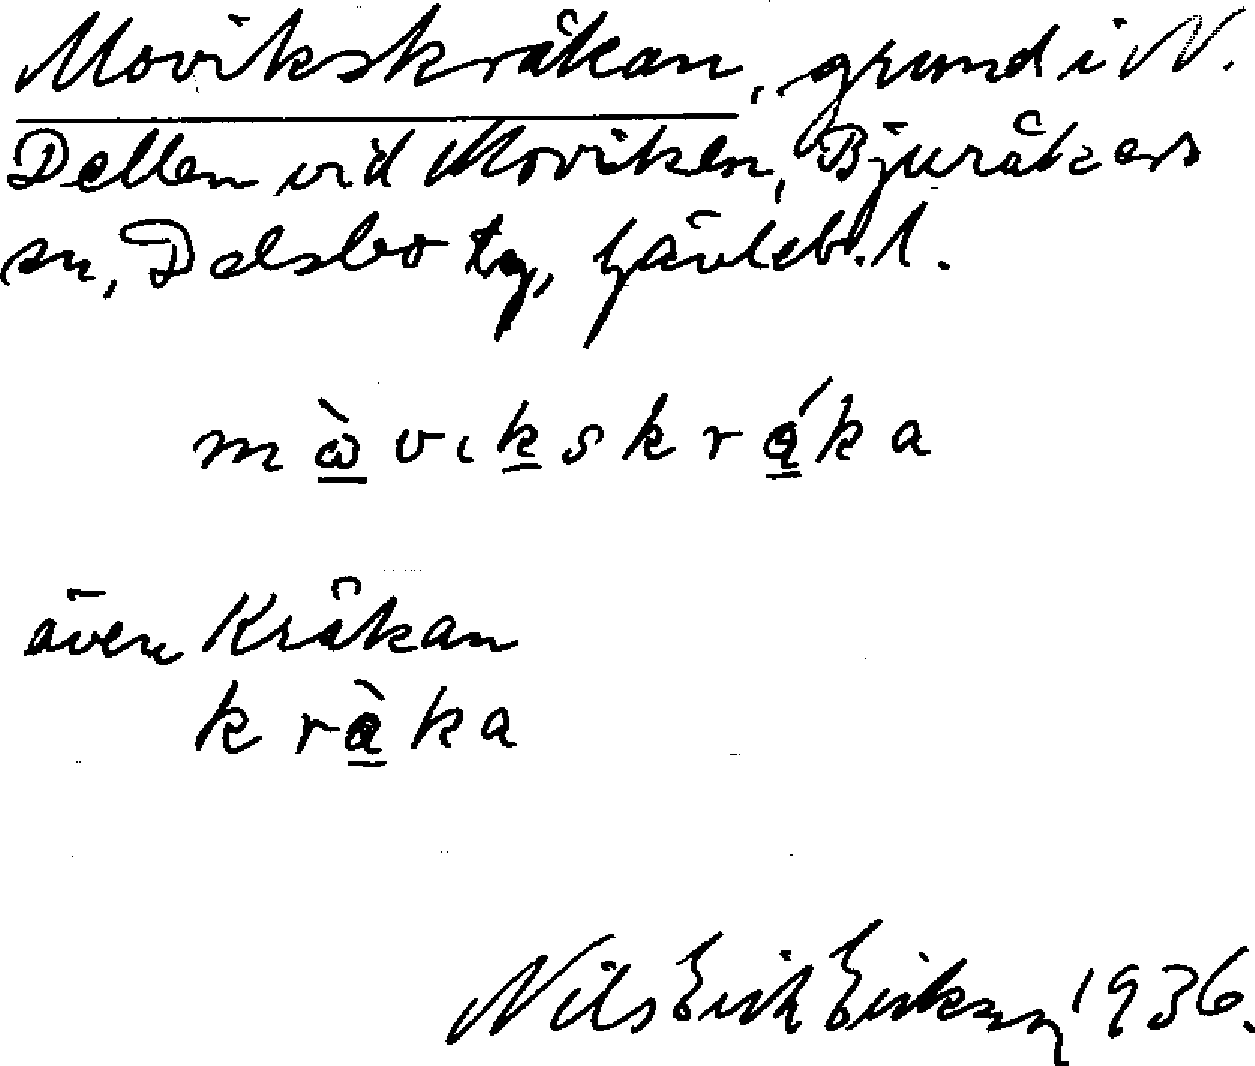 Movikskråkan, grund i N.
Dellen vid Moviken, Bjuråkers
sn, Delsbo tg, Gävleb. l.
mὼvıkskrá̱ka
även Kråkan
krà̱ka
Nils Erik Eriksson 1936.